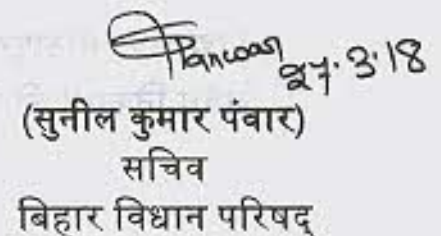 Panwar 27.3.18
(सुनील कुमार पंवार)
सचिव
बिहार विधान परिषद्